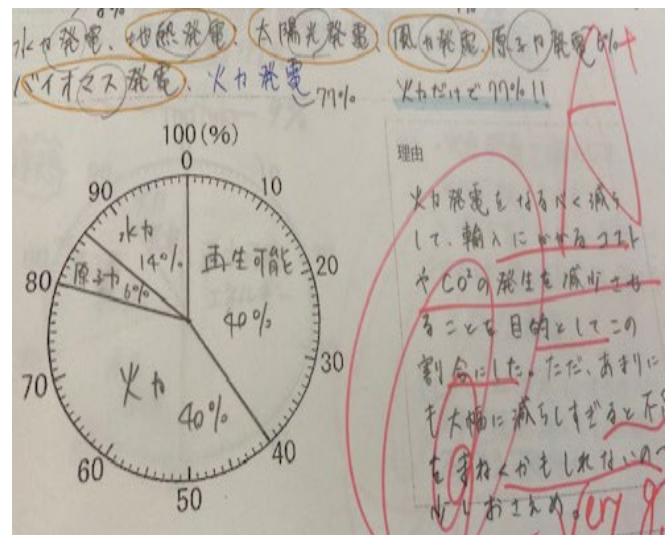 8%
水力発電、地熱発電、太陽光発電、風力発電、原子力発電 6%
バイオマス発電、火力発電 77%
火力だけで77%!!
100(%)
0
10
20
30
40
50
60
70
80
90
再生可能
40%
火力
40%
原子力 6%
水力
14%
理由
火力発電をなるべく減ら
して、輸入にかかるコスト
やCO²の発生を減少させ
ることを目的としてこの
割合にした。ただ、あまりに
も大幅に減らしすぎると不
をまねくかもしれないので
少しおさえめ。
A+
Very g